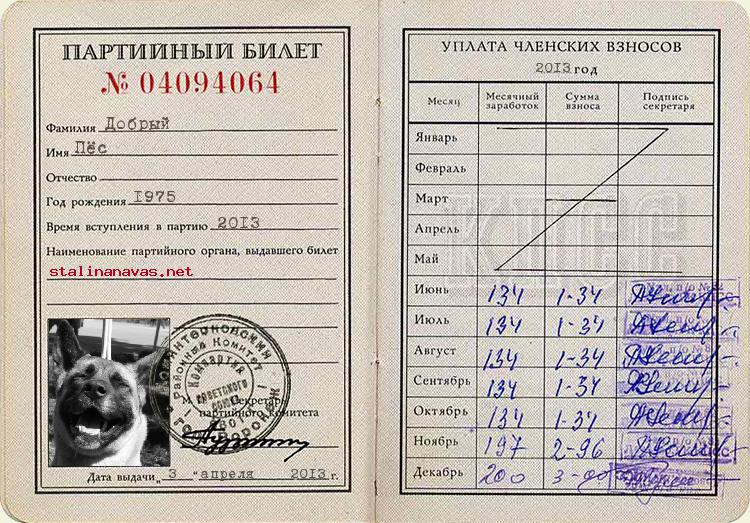 ПАРТИЙНЫЙ БИЛЕТ
№ 04094064
Фамилия Добрый
Имя Пёс
Отчество
Год рождения 1975
Время вступления в партию 2013
Наименование партийного органа, выдавшего билет
stalinanavas.net
Районный Комитет
Компартий
Советского
Союза
М. Секретарь
партийного комитета
Дата выдачи „ 3 " апреля 2013 г.
УПЛАТА ЧЛЕНСКИХ ВЗНОСОВ
2013 год
Месяц Месячный заработок Сумма взноса Подпись секретаря
Январь
Февраль
Март
Апрель
КПСС
Май
Июнь 134 1-34
Июль 134 1-34
Август 134 1-34
Сентябрь 134 1-34
Октябрь 134 1-34
Ноябрь 197 2-96
Декабрь 200